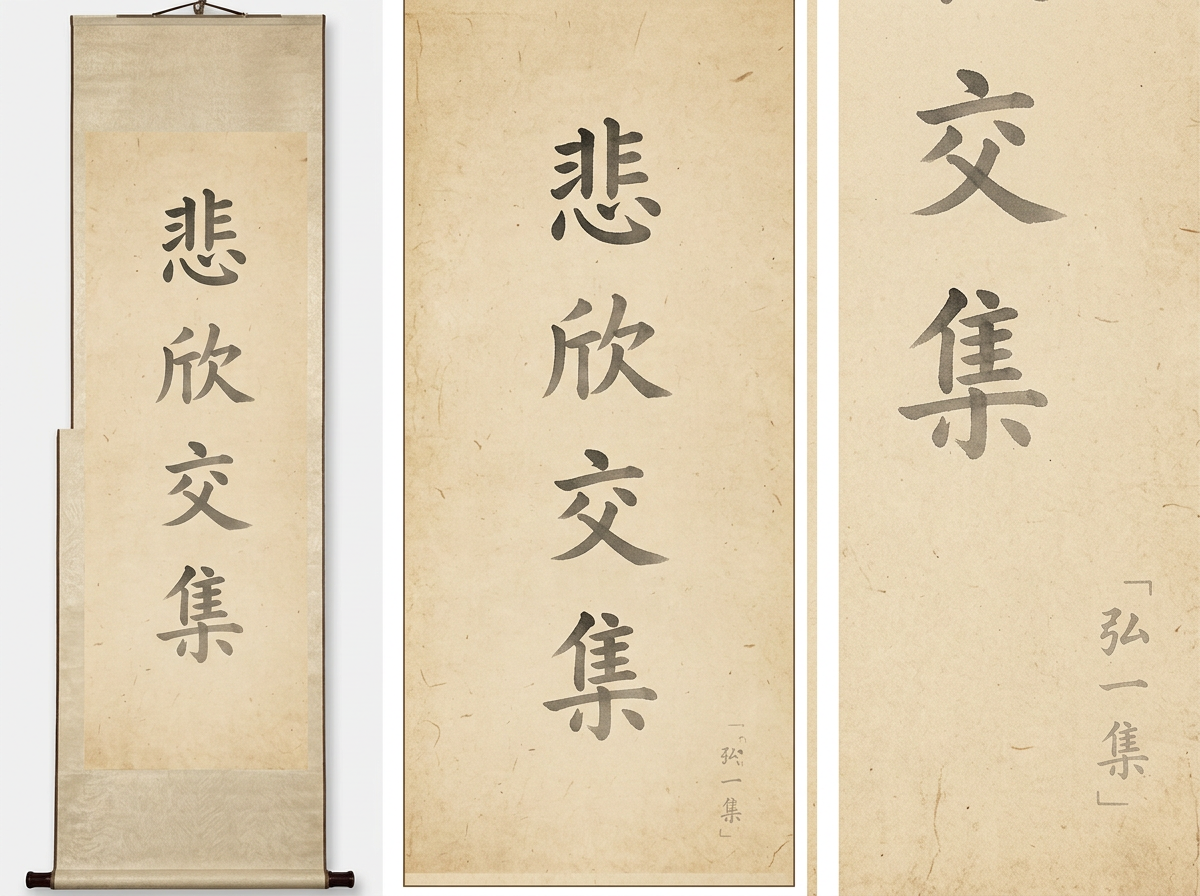 悲欣交集
悲欣交集
「弘一集」
交集
「弘一集」